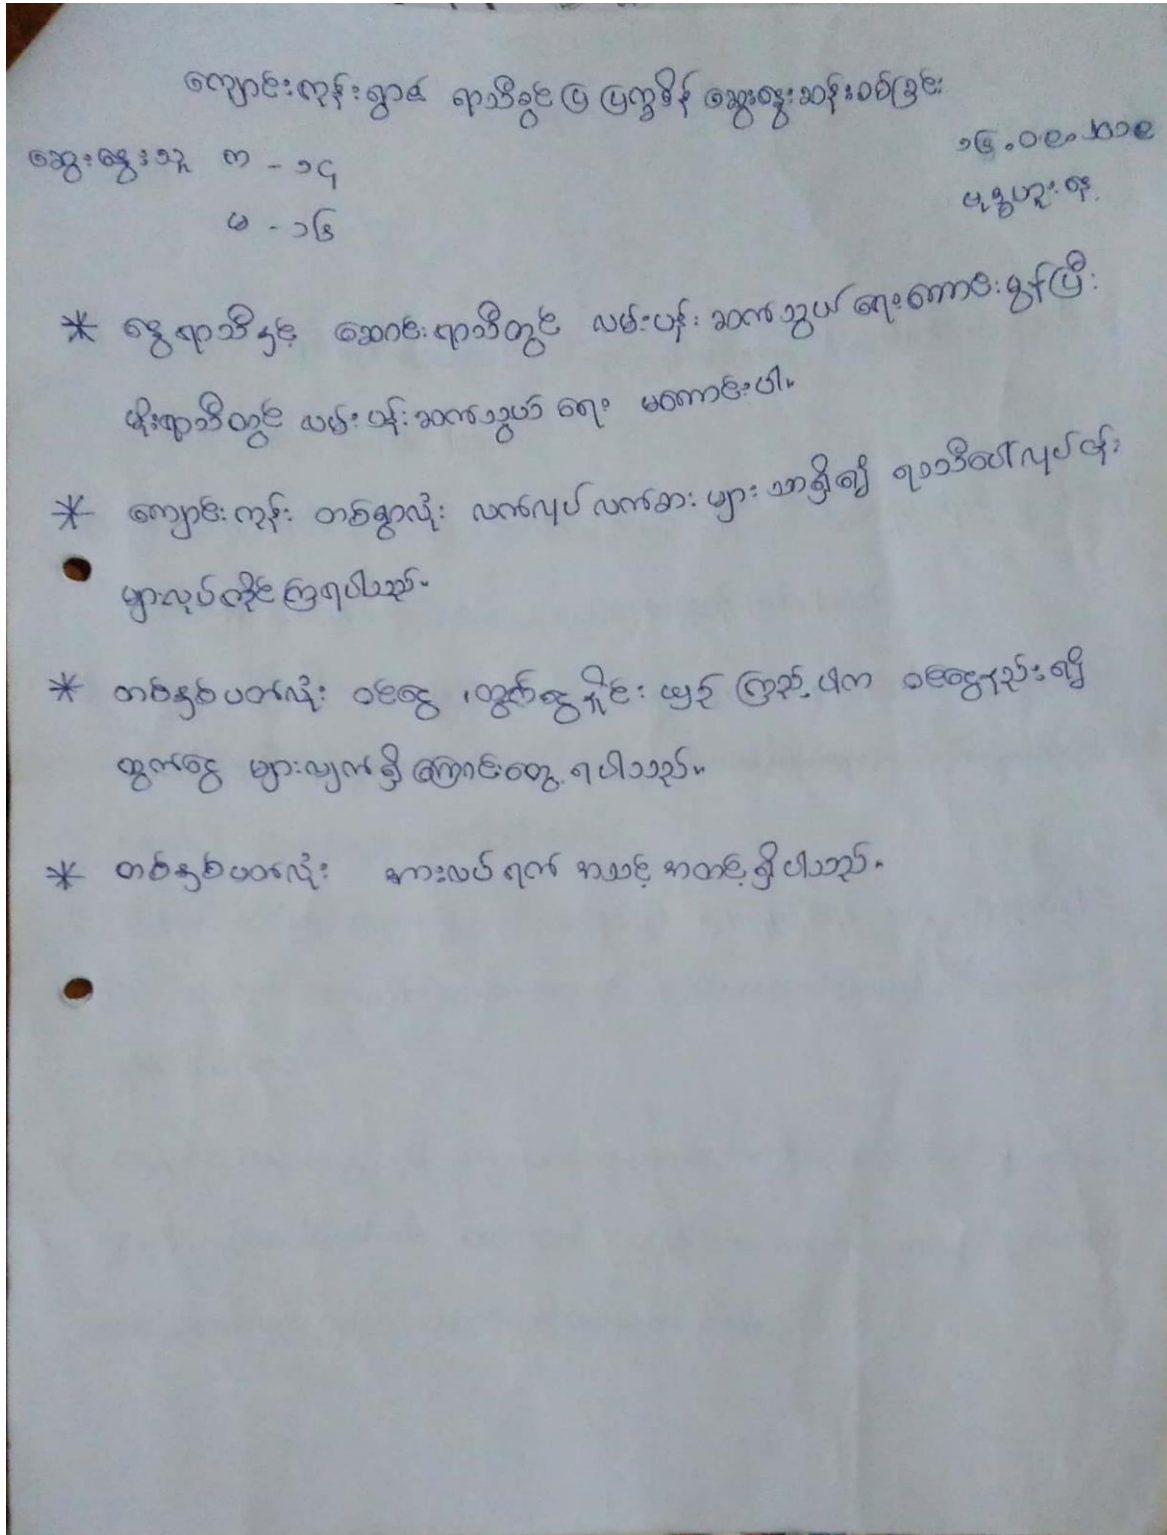 ကျောင်းကုန်းရွာ၏ ရာသီခွင်ပြ ပြက္ခဒိန် ဆွေးနွေးဆန်းစစ်ခြင်း
၁၆.၀၉.၂၀၁၉
ဆွေးနွေးသူ က - ၁၄
ဗုဒ္ဓဟူးနေ့
မ - ၁၆
* နွေရာသီနှင့် ဆောင်းရာသီတွင် လမ်းပန်း ဆက်သွယ် ရေးကောင်းမွန်ပြီး
မိုးရာသီတွင် လမ်းပန်းဆက်သွယ် ရေး မကောင်းပါ။
* ကျောင်းကုန်း တစ်ရွာလုံး လက်လုပ် လက်စား များ သာရှိ၍ ရာသီပေါ်လုပ်ငန်း
များလုပ်ကိုင်ကြရပါသည်။
* တစ်နှစ်ပတ်လုံး ဝင်ငွေ ၊ထွက်ငွေ နှိုင်း ယှဉ် ကြည့်ပါက ဝင်ငွေနည်း၍
ထွက်ငွေ များလျက်ရှိကြောင်းတွေ့ ရပါသည်။
* တစ်နှစ်ပတ်လုံး အားလပ် ရက် အသင့် အတင့်ရှိပါသည်။